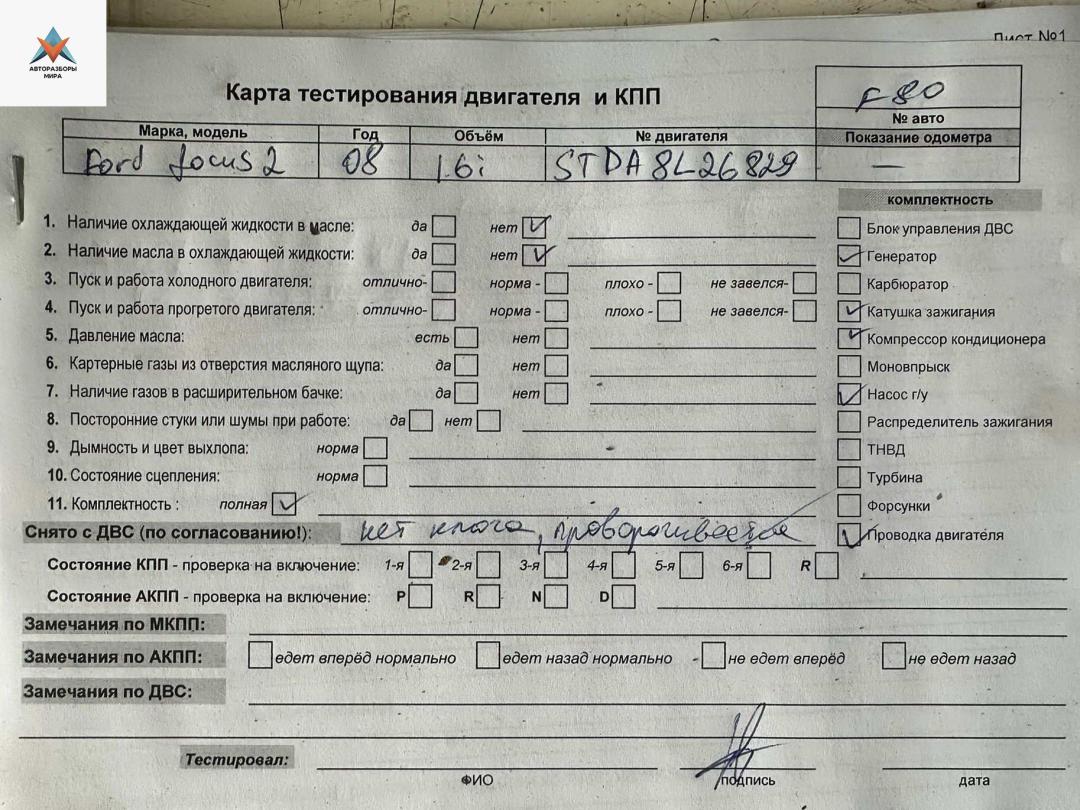 АВТОРАЗБОРЫ
МИРА
Лист №1
Карта тестирования двигателя и КПП
F80
№ авто
Марка, модель Год Объём № двигателя Показание одометра
Ford focus 2 08 1.6i STDA8L26829 —
комплектность
1. Наличие охлаждающей жидкости в масле: да нет Блок управления ДВС
2. Наличие масла в охлаждающей жидкости: да нет Генератор
3. Пуск и работа холодного двигателя: отлично- норма - плохо - не завелся- Карбюратор
4. Пуск и работа прогретого двигателя: отлично- норма - плохо - не завелся- Катушка зажигания
5. Давление масла: есть нет Компрессор кондиционера
6. Картерные газы из отверстия масляного щупа: да нет Моновпрыск
7. Наличие газов в расширительном бачке: да нет Насос г/у
8. Посторонние стуки или шумы при работе: да нет Распределитель зажигания
9. Дымность и цвет выхлопа: норма ТНВД
10. Состояние сцепления: норма Турбина
11. Комплектность : полная Форсунки
Снято с ДВС (по согласованию!): нет ключа, проворачивается Проводка двигателя
Состояние КПП - проверка на включение: 1-я 2-я 3-я 4-я 5-я 6-я R
Состояние АКПП - проверка на включение: P R N D
Замечания по МКПП:
Замечания по АКПП: едет вперёд нормально едет назад нормально не едет вперёд не едет назад
Замечания по ДВС:
Тестировал:
ФИО подпись дата